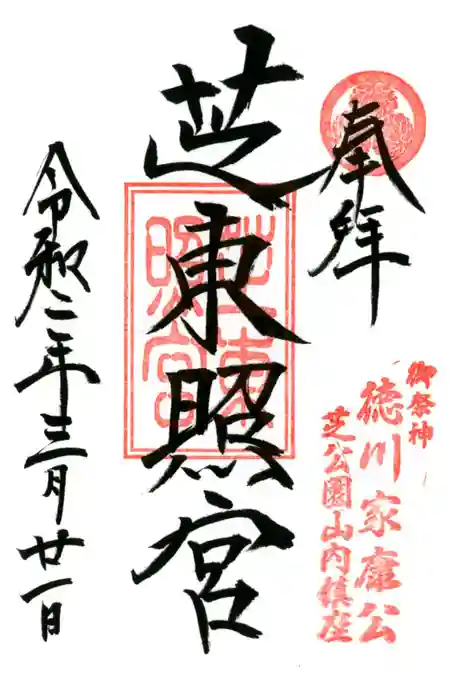 奉拝
御祭神
徳川家康公
芝公園山内鎮座
芝東照宮
芝東
照宮
令和二年三月廿一日